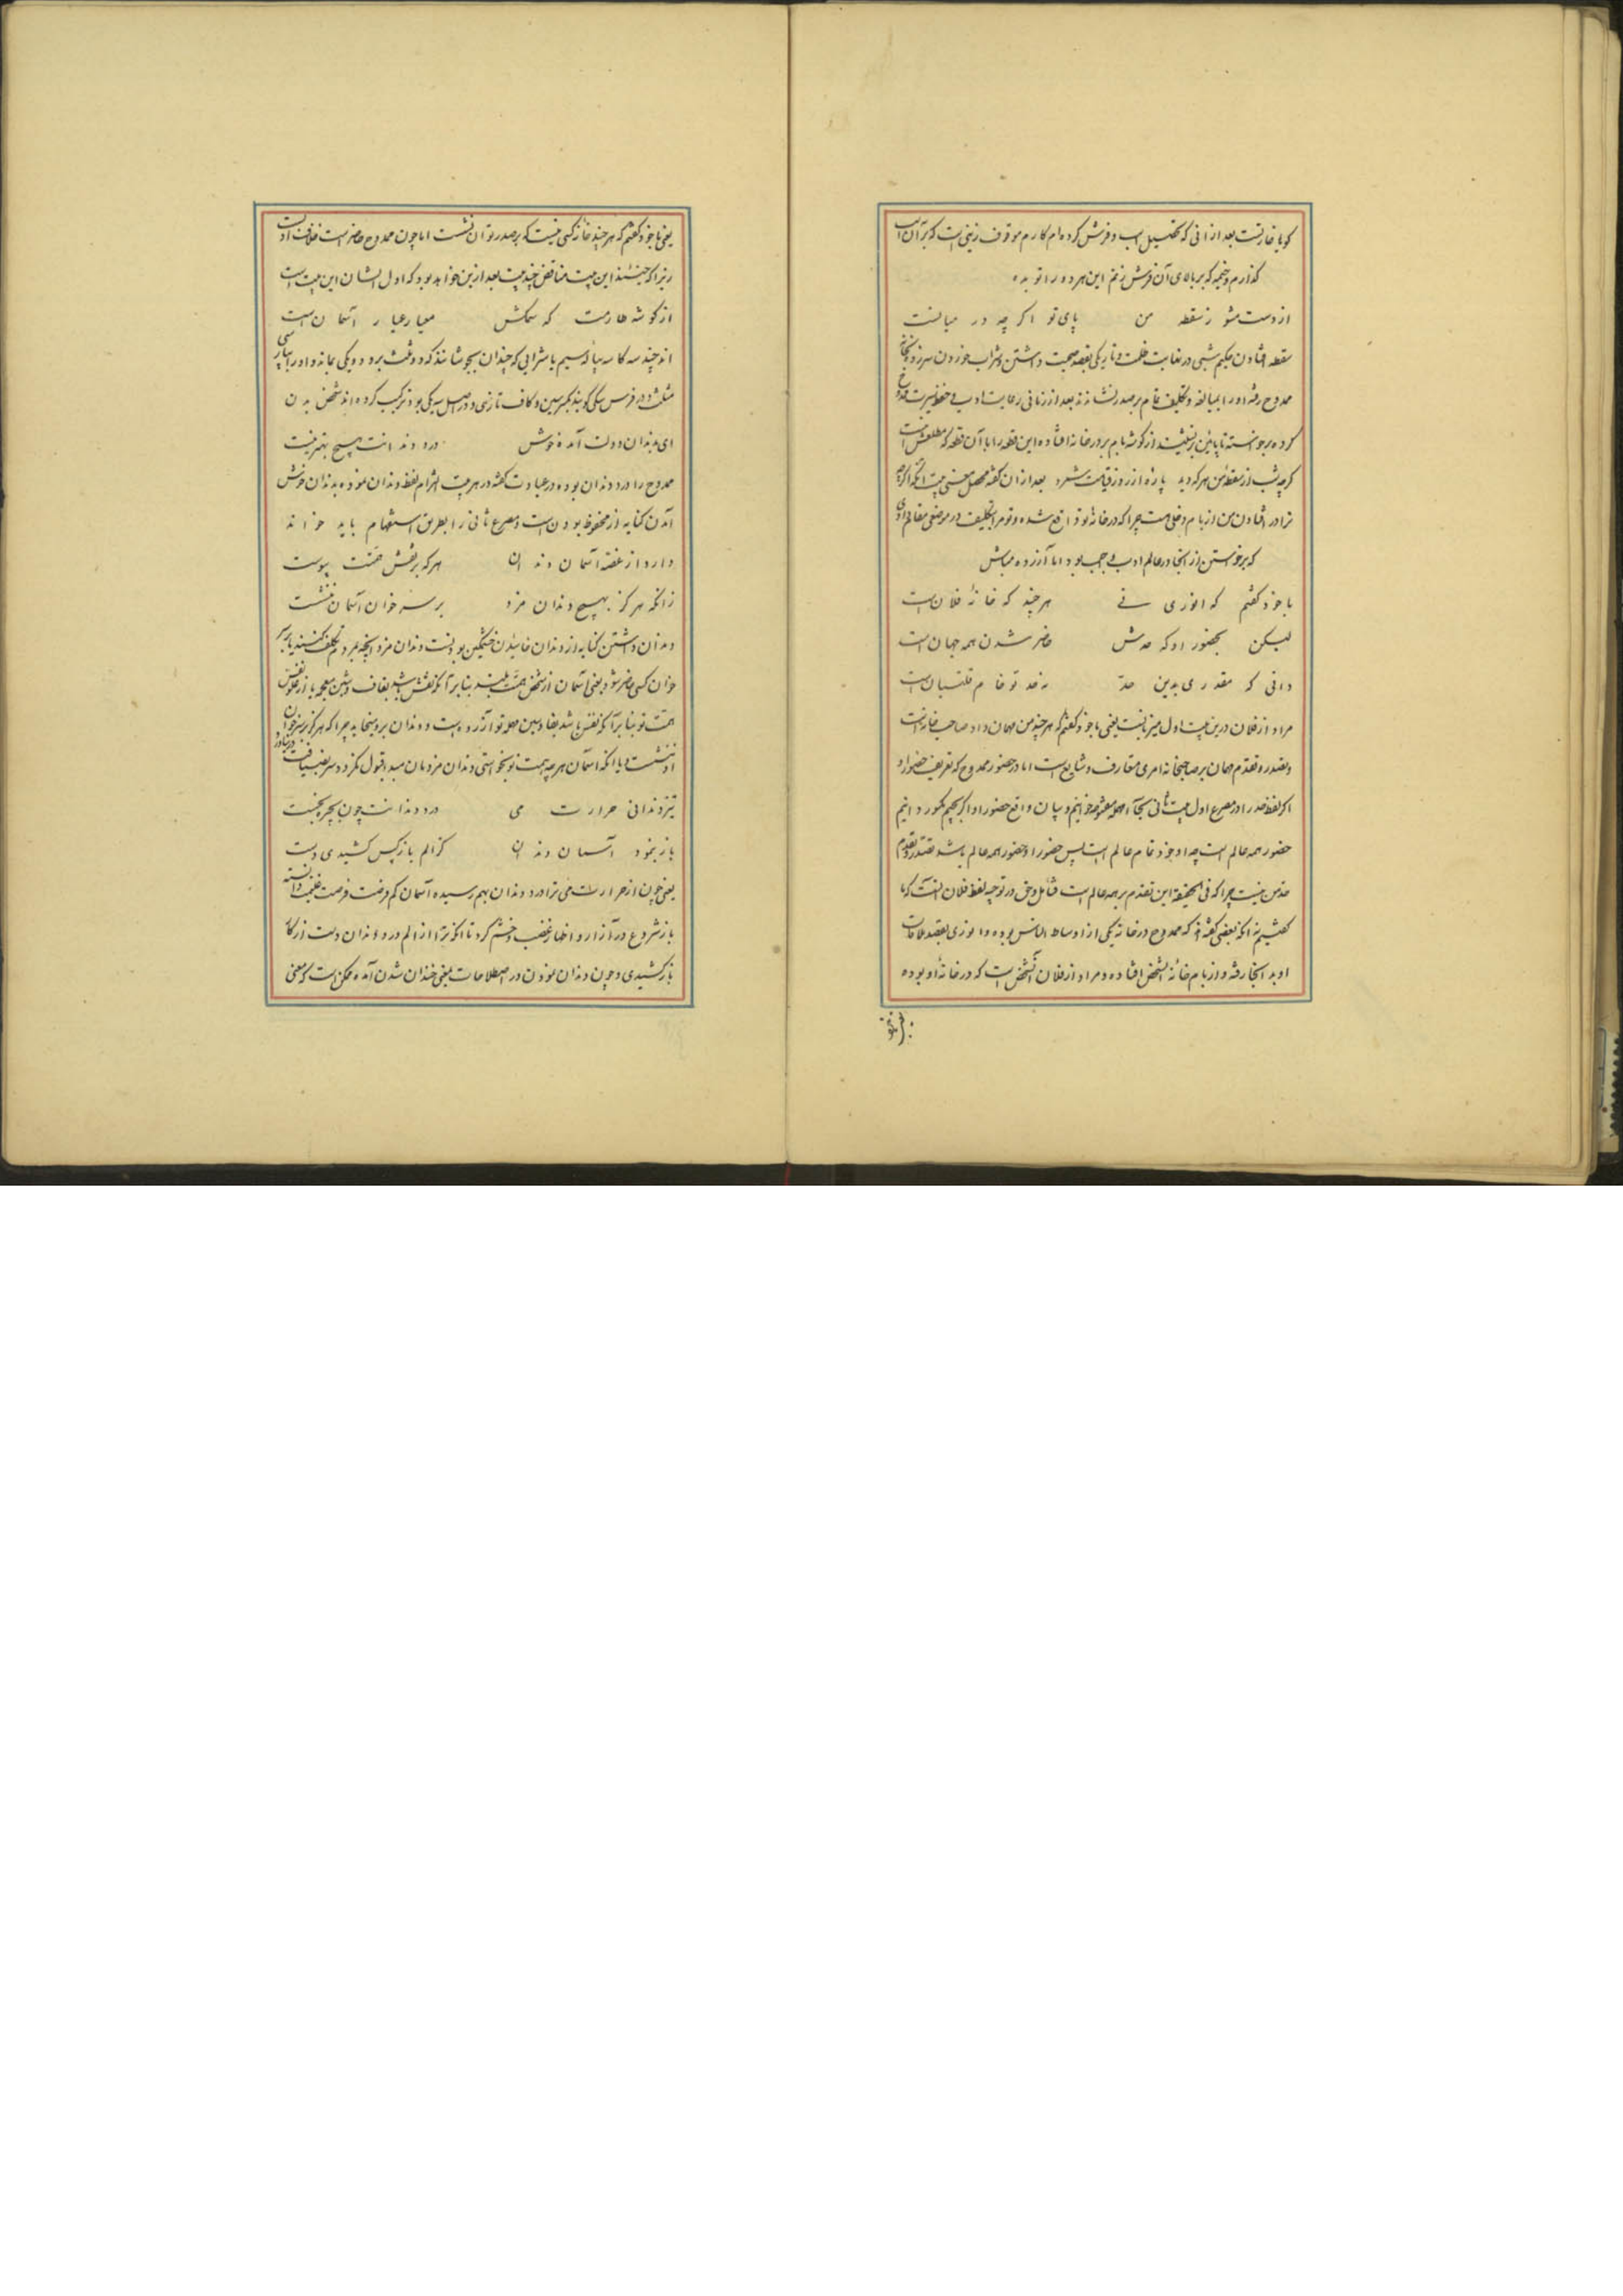 کویا خارتست بعد از انی که تحصیل اسب و فرش کرده‌ام کارم موقوف زینی است که بر آن اسب
گذارم و خیمه که بر بالای آن فرش زنم این هر دو را تو بده
از دست مشو ز سقطه من پای تو اگر چه در میانست
سقطه افتادن حکیم شبی در غایت ظلمت و تاریکی بقصد صحبت داشتن و شراب خوردن سرزده بخانه
ممدوح رفته او را بمبالغه و تکلیف تمام بر صدر نشانده‌اند بعد از زمانی رعایت ادب
کرده برخواسته تا پایین‌تر نشیند از گوشه بام بر در خانه افتاده این قطعه را با آن قطعه که مطلعش است
گرچه شب از سقطه من هر که دید پاره از روز قیامت شمرد بعد از آن گفته محصل معنی بیت آنکه اگرچه
ترا در افتادن من از بام دخلی هست چرا که در خانه تو واقع شده و تو مرا تکلیف در موضعی مقام دادی
که برخواستن از انجا در عالم ادب واجب بود اما آزرده مباش
با خود گفتم که انوری نی هر چند که خانهٔ فلان است
لیکن بحضور او که صدش حاضر شدن همه جهان است
دانی که مقدری بدین حد نه حد تو خام قلتبان است
مراد از فلان درین بیت اول میزبانست یعنی با خود گفتم که هر چند من مهمان و او صاحب خانه است
و تصدر و تقدم مهمان بر صاحبخانه امری متعارف و شایع است اما در حضور ممدوح که تعریف حضور او
اگر لفظ صدر او در مصرع اول بیت ثانی بحاء مهمله مفتوحه خوانیم و بیان واقع حضور او اگر بجیم مکسور دانیم
حضور همه عالم است چه او خود تمام عالم است پس حضور او حضور همه عالم باشد تصدر و تقدم
حد من نیست چرا که فی الحقیقه این تقدم بر همه عالم است فتامل و حق در توجیه لفظ فلان انست که ما
گفتیم نه آنکه بعضی گفته‌اند که ممدوح در خانه یکی از اوساط الناس بوده و انوری بقصد ملاقات
او بد انجا رفته و از بام خانه آنشخص افتاده و مراد از فلان آنشخص است که در خانه او بوده
یعنی با خود گفتم که هر چند خانه کسی نیست که بر صدر توان نشست اما چون ممدوح حاضر است خلاف ادبست
زیرا که حینئذ این بیت مناقض چند بیت بعد ازین خواهد بود که اول ایشان این بیت است
از گوشه طارمت که سمکش معیار عیار آسمان است
اند چند سه کاسه بپا و سیم با شرابی که چندان بجوشانند که دو ثلث برود و یکی بماند و او را
مثلث و در فرس سیکی گویند بکسر سین و کاف تازی و در اصل سه یکی بوده ترکیب کرده‌اند
ای بدندان دولت آمده خوش درد دندانت هیچ بهتر نیست
ممدوح را درد دندان بوده در عیادت گفته در هر بیت التزام لفظ دندان نموده بدندان خوش
آمدن کنایه از محظوظ بودن است و مصرع ثانی را بطریق استفهام باید خواند
دارد از غصه آسمان دندان هر که بر نقش همتت پیوست
زانکه هرگز بهیچ دندان مزد بر سر خوان آسمان ننشست
دندان داشتن کنایه از دندان خاییدن و خشمگین بودنست دندان مزد آنچه بمردم تکلف کنند تا بر سر
خوان کسی حاضر شود یعنی آسمان از شخص همت بلند بنابر آنکه نقش باشد بقاف و شین معجمه یا از علو نفس
همت تو بنابر آنکه نفس باشد بفا و سین مهمله تو آزرده است و دندان بر وی میخاید چرا که هرگز بر سر خوان
او ننشست و یا آنکه آسمان هر چه همت تو بخواستی دندان مزد بآن میداد قبول نکرد و سر
تیزدندانی حرارت می درد دندانت چون بچهره بخست
باز بنمود آسمان دندان کز الم باز پس کشیدی دست
یعنی چون از حرارت می ترا درد دندان بهم رسیده آسمان کم فرصت فرصت غنیمت دانسته
باز شروع در آزار و اظهار غضب و خشم کرد تا آنکه ترا از الم درد دندان دست از کار
باز کشیدی و چون دندان نمودن در اصطلاحات بمعنی خندان شدن آمده ممکن است که معنی